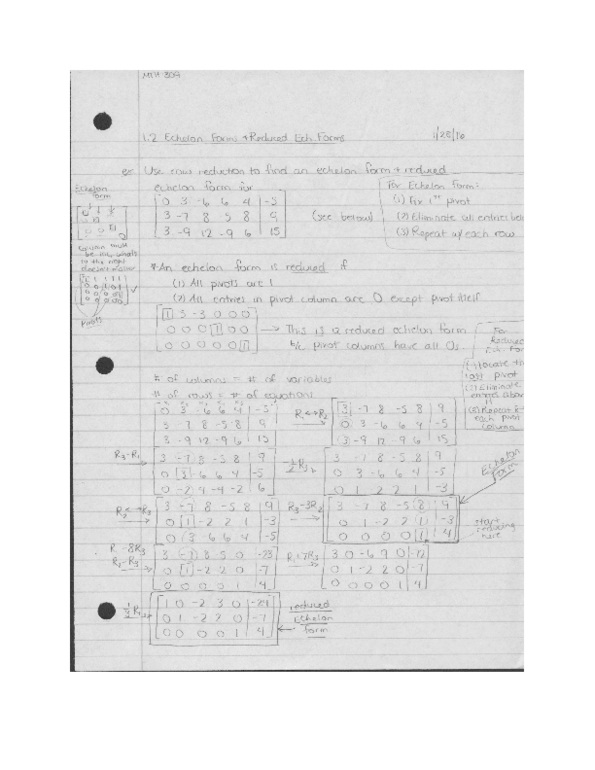 MTH 309
1.2 Echelon Forms + Reduced Ech. Forms 1/20/16
ex: Use row reduction to find an echelon form + reduced
echelon form for
0 3 -6 6 4 | -5
3 -7 8 5 8 | 9
3 -9 12 -9 6 | 15
(see below)
For Echelon Form:
(1) Fix 1st pivot
(2) Eliminate all entries bel
(3) Repeat w/ each row
Echelon
form
Pivots
*An echelon form is reduced if
(1) All pivots are 1
(2) All entries in pivot column are 0 except pivot itself
1 5 -3 0 0 0
0 0 0 1 0 0
0 0 0 0 0 1
→ This is a reduced echelon form
b/c pivot columns have all 0s.
For
Reduced
(1) Locate th
last pivot
(2) Eliminate
entries above
it
(3) Repeat
each pivot
column
# of columns = # of variables
# of rows = # of equations
0 3 -6 6 4 | -5
3 7 8 -5 8 | 9
3 -9 12 -9 6 | 15
3 -7 8 -5 8 | 9
0 3 -6 6 4 | -5
3 -9 12 -9 6 | 15
R3-R1
3 -7 8 -5 8 | 9
0 3 -6 6 4 | -5
0 -2 4 -4 -2 | 6
3 -7 8 -5 8 | 9
0 3 -6 6 4 | -5
0 1 -2 2 1 | -3
R2↔R3
3 -7 8 -5 8 | 9
0 1 -2 2 1 | -3
0 3 -6 6 4 | -5
R3-3R2
3 -7 8 -5 8 | 9
0 1 -2 2 1 | -3
0 0 0 0 1 | 4
Echelon
Form
start
reducing
here
R1-8R3
R2-R3
3 -7 8 -5 0 | -23
0 1 -2 2 0 | -7
0 0 0 0 1 | 4
3 0 -6 9 0 | -72
0 1 -2 2 0 | -7
0 0 0 0 1 | 4
1 0 -2 3 0 | -24
0 1 -2 2 0 | -7
0 0 0 0 1 | 4
reduced
Echelon
form